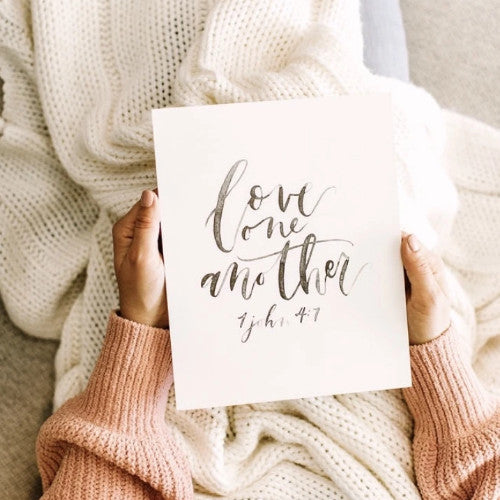 love
one
another
1 john 4:7